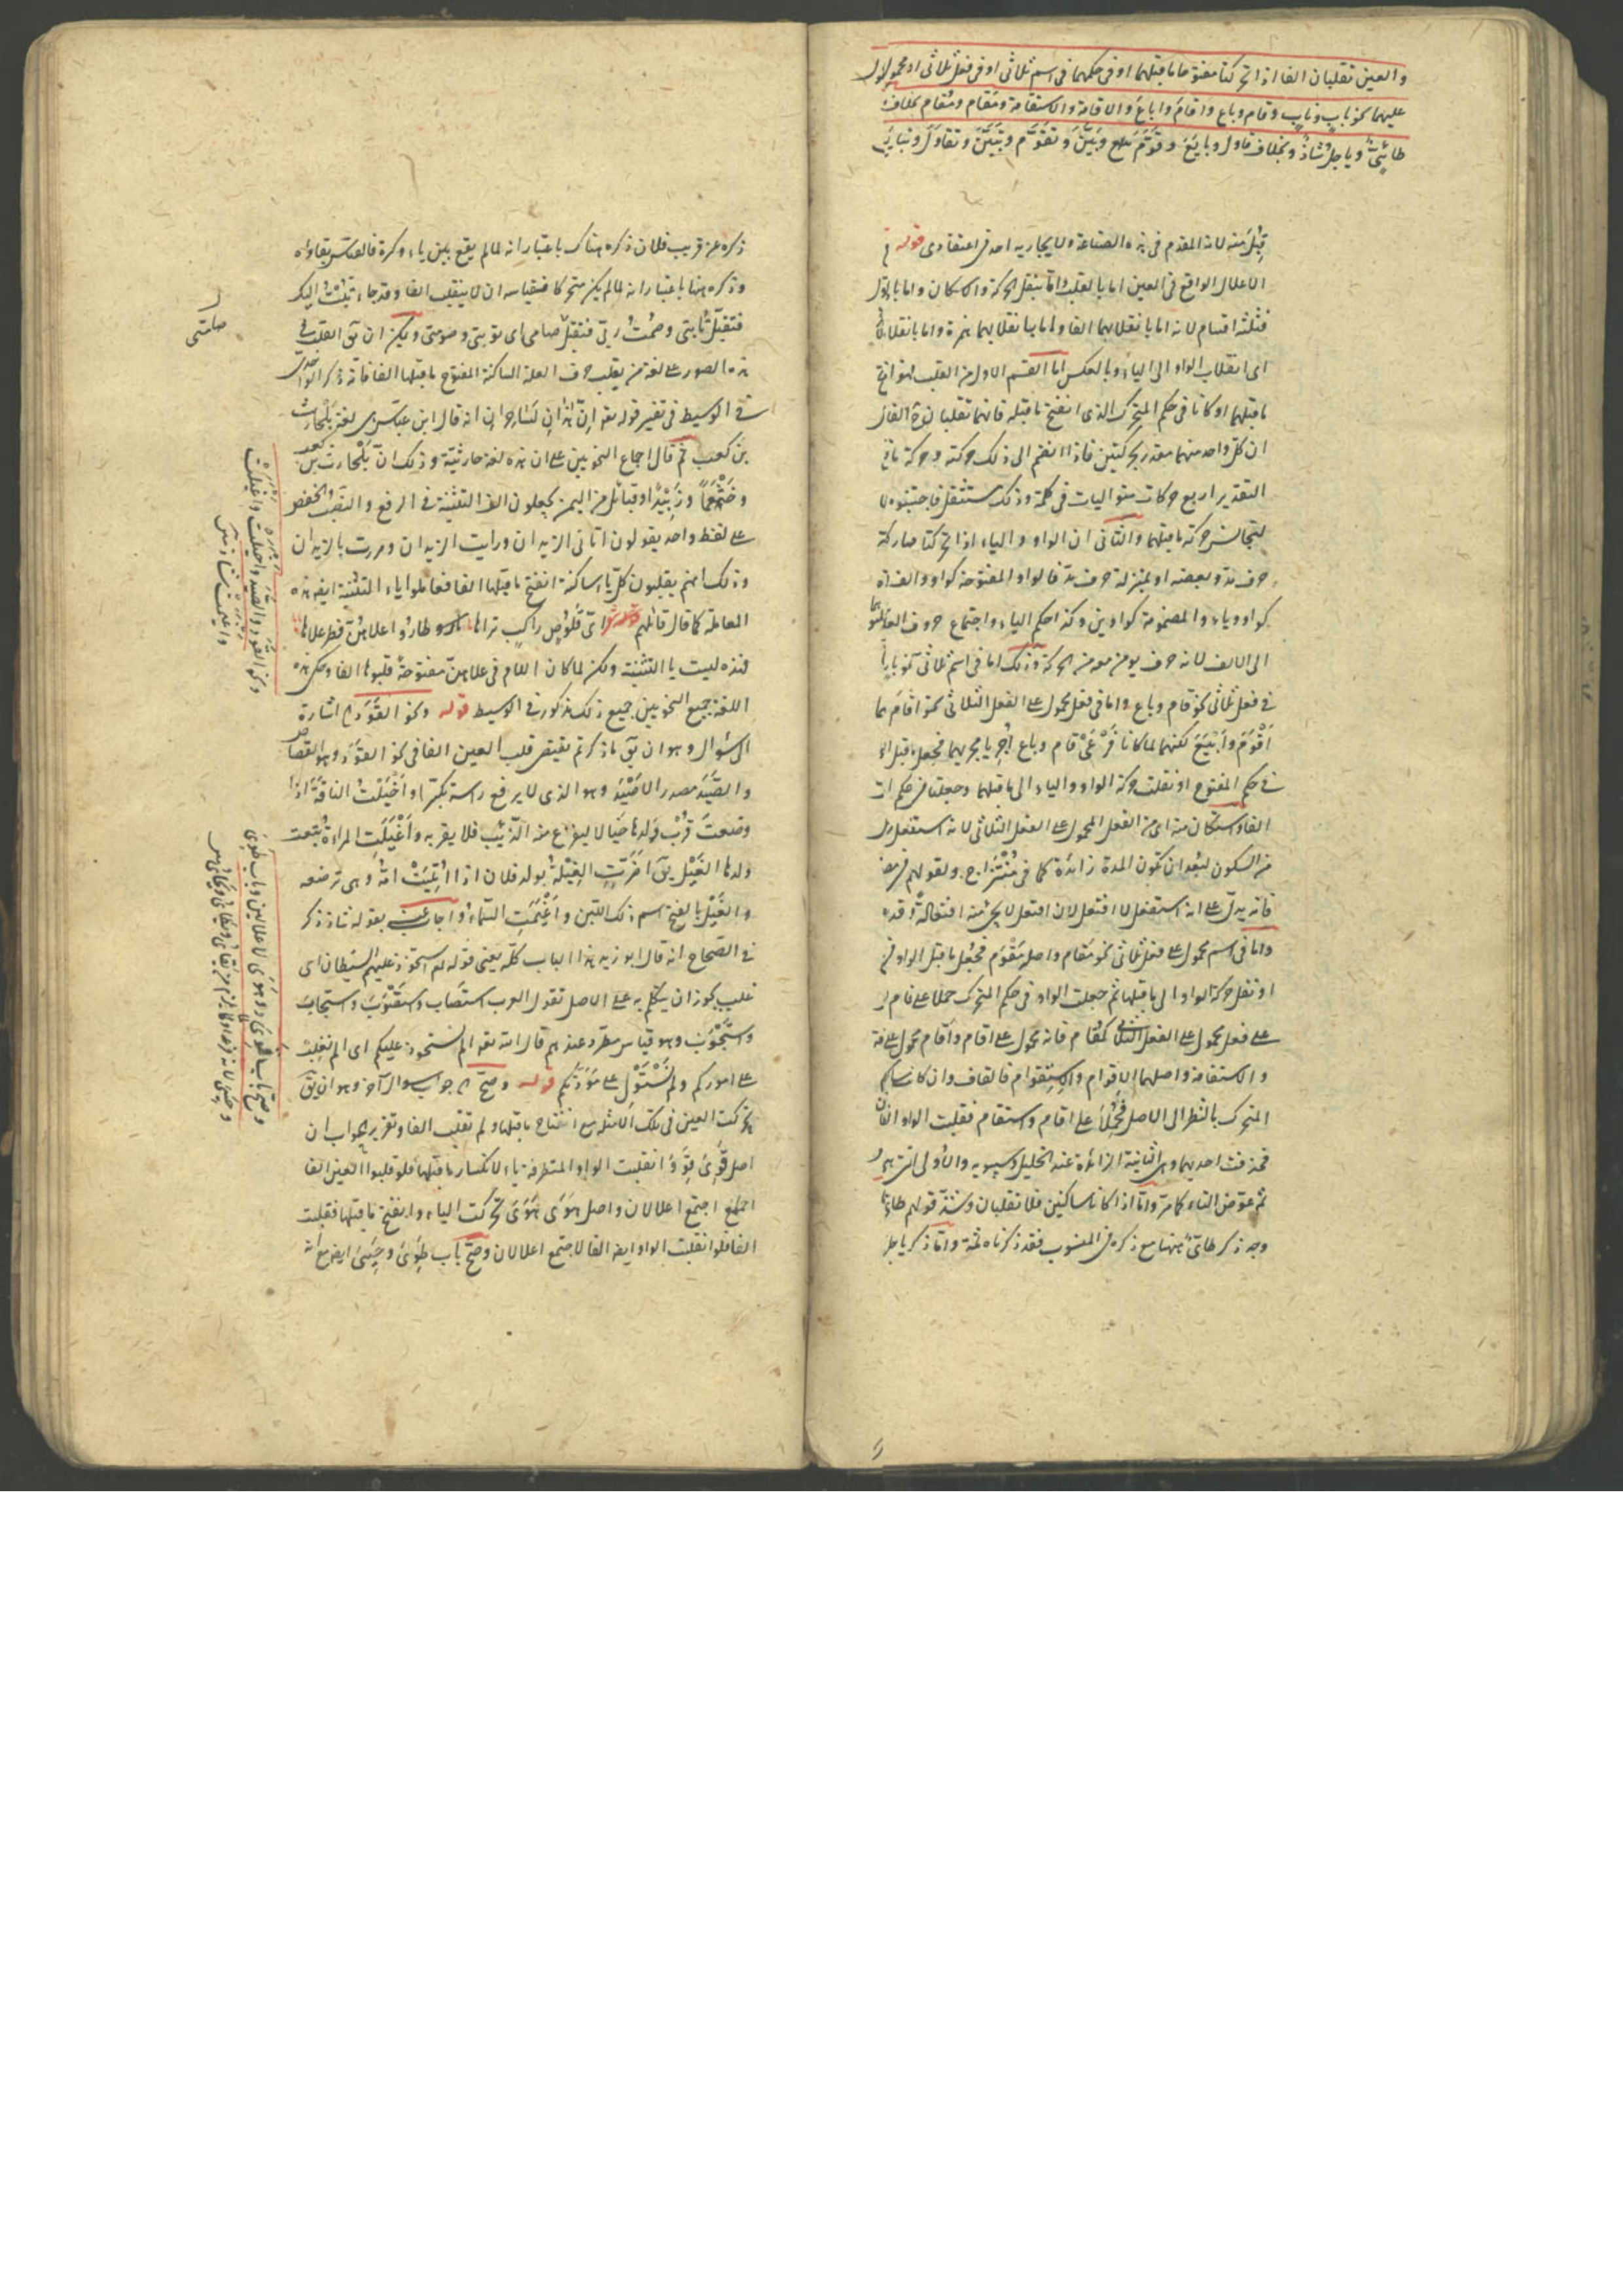 والعين تقلبان الفا اذا تحركتا مفتوحا ما قبلهما او فى حكمهما فى اسم ثلاثى او فى فعل ثلاثى او محمول
عليهما نحو باب وناب وقام وباع واقام واباع والاقامة والاستقامة ومقام ومُقام بخلاف
طائىّ وياجل شاذ وبخلاف قاول وبايَعَ وقوّم وبيّن وتقوّم وتبيّن وتقاول وتباين
قبل منه لانه المقدم فى هذه الصناعة ولا يجاريه احد فى اعتقادى قوله
الاعلال الواقع فى العين اما بالقلب واما بنقل الحركة والاسكان واما بالاول
فثلثة اقسام لانه اما بانقلابهما الفا واما بانقلابهما همزة واما بانقلاب
اى انقلاب الواو الى الياء وبالعكس اما القسم الاول من القلب فهو انفتح
ما قبلهما او كانا فى حكم المتحرك الذى انفتح ما قبله فانهما تقلبان الفا
ان كل واحد منهما مقدر بحركتين فاذا انضم الى ذلك حركته وحركة ما
التقدير اربع حركات متواليات فى كلمة وذلك مستثقل فاجتنبوه
لتجانس حركة ما قبلهما والثانى ان الواو والياء اذا تحركتا صار كل
حرف مدة وبعضه او بمنزلة حرف مد فالواو المفتوحة كواو والف
كواو وياء والمضمومة كواوين وكذا حكم الياء واجتماع حروف العلة
الى الالف لانه حرف يومن معه من الحركة وذلك اما فى اسم ثلاثى نحو باب
فى فعل ثلاثى نحو قام وباع واما فى فعل محمول على الفعل الثلاثى نحو اقام
اقوم وابيع لكنهما لما كانا فرعى قام وباع اجريا مجريهما فجعل ما قبل
فى حكم المفتوح او نقلت حركة الواو والياء الى ما قبلهما وجعلتا فى حكم
الفا واستكان منه اى من الفعل المحمول على الفعل الثلاثى لانه استفعل
من السكون لبعد ان تكون المدة زائدة كما فى منتزاح ولقولهم
فانه يدل على انه استفعل لا افتعل لان افتعل لا يجىء منه افتعالة
واما فى اسم محمول على فعل ثلاثى نحو مقام واصله مَقْوَم فجعل ما قبل الواو
او نقل حركة الواو الى ما قبلها ثم جعلت الواو فى حكم المتحرك حملا على قام
على فعل محمول على الفعل الثلاثى كمُقام فانه محمول على اقام واقام محمول على
والاستقامة واصلهما الاقوام والاستقوام فالقاف وان كان
المتحرك بالنظر الى الاصل فحملا على اقام واستقام فقلبت الواو الفا
فحذفت احديهما وهى الثانية الزائدة عند الخليل وسيبويه والاولى
ثم عوض التاء كما مر واما اذا كانا ساكنين فلا تقلبان وشذ قولهم طائى
وجه ذكر طائىّ ههنا مع ذكره فى المنسوب فقد ذكرناه ثمة واما ذكر ياجل
ذكره عن قريب فلان ذكره هناك باعتبار انه لما لم يقع بين ياء وكسرة فالقياس بقاؤه
وذكره هنا باعتبار انه لما لم يكن متحركا فقياسه ان لا ينقلب الفا وقد جاء تبت اليك
فتقبل تابتى وصمت ربى فتقبل صامى اى توبتى وصومتى ويمكن ان يق القلب فى
هذه الصور على لغة من يقلب حرف العلة الساكنة المفتوح ما قبلها الفا فانه ذكر الواحدى
فى الوسيط فى تفسير قوله تعه اِنّ هذان لساحران انه قال ابن عباس هى لغة بلحارث
بن كعب ثم قال اجماع النحويين على ان هذه لغة حارثية وذلك ان بلحارث بن كعب
وخثعما وزبيدا وقبائل من اليمن يجعلون الف التثنية فى الرفع والنصب والخفض
على لفظ واحد يقولون اتانى الزيدان ورايت الزيدان ومررت بالزيدان
وذلك انهم يقلبون كل ياء ساكنة انفتح ما قبلها الفا فعاملوا ياء التثنية ايضه هذه
المعاملة كما قال قائلهم اى قلوص راكب تراها طاروا علاهن فطر علاها
فهذه ليست يا التثنية ولكن لما كان اللام فى علاهن مفتوحة قلبوها الفا وحكى هذه
اللغة جميع النحويين جميع ذلك مذكور فى الوسيط قوله ونحو القَوَد اشارة
الى سؤال وهو ان يق ما ذكرتم يقتضى قلب العين الفا فى نحو القود وهو القصاص
والصَيَد مصدر الاصيد وهو الذى لا يرفع راسه تكبرا واَخْيَلَت الناقة اذا
وضعت قرب ولدها خيالا ليفزع منه الذئب فلا يقربه واَغْيَلَت المراة
ولدها الغيل يق اضرّت الغيلة بولد فلان اذا اتيت امه وهى ترضعه
والغيل بالفتح اسم ذلك اللبن واغيمت السماء واجاب عنه بقوله شاذ ذكر
فى الصحاح انه قال ابو زيد هذا الباب كله يعنى قوله تعه استحوذ عليهم الشيطان اى
غلب يجوز ان يتكلم به على الاصل تقول العرب استصاب واستصوب واستجاب
واستجوب وهو قياس مطرد عندهم قال الله تعه الم نستحوذ عليكم اى الم نغلب
على اموركم ولم نستول على مودتكم قوله وصح جواب سوال آخر وهو ان يق
تحركت العين فى تلك الامثلة مع انفتاح ما قبلها ولم تقلب الفا وتقرير الجواب ان
اصل قَوِىَ قَوِوَ انقلبت الواو المتطرفة ياء لانكسار ما قبلها فلو قلبوا العين الفا
اجتمع اعلالان واصل هَوَى هَوَىَ تحركت الياء وانفتح ما قبلها فقلبت
الفا فلو انقلبت الواو ايضه الفا لاجتمع اعلالان وصح باب طَوِىَ وحَيِىَ ايضه مع
صامتى
ونحو القود والصيد واخيلت واغيلت
واغيمت شاذ
وصح باب قوى وهوى للاعلالين وباب طوى
وحيى لانه فرعه